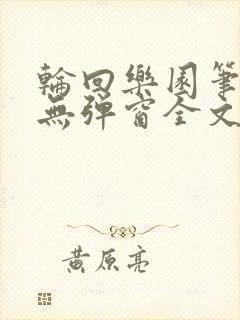 輪回樂園筆
無彈窗全文
黃原亮